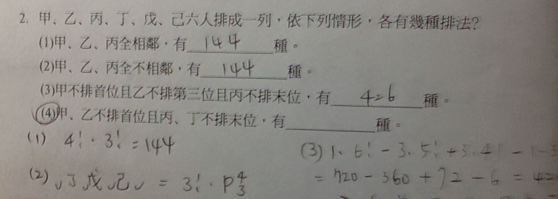 2. 甲、乙、丙、丁、戊、己六人排成一列，依下列情形，各有幾種排法？
(1)甲、乙、丙全相鄰，有 144 種。
(2)甲、乙、丙全不相鄰，有 144 種。
(3)甲不排首位且乙不排第三位且丙不排末位，有 426 種。
(4)甲、乙不排首位且丙、丁不排末位，有 種。
(1) 4!·3! = 144
(2) ✓丁✓戊✓己✓ = 3!·P⁴₃
(3) 1·6! - 3·5! + 3·4! - 1·3
= 720 - 360 + 72 - 6 = 42